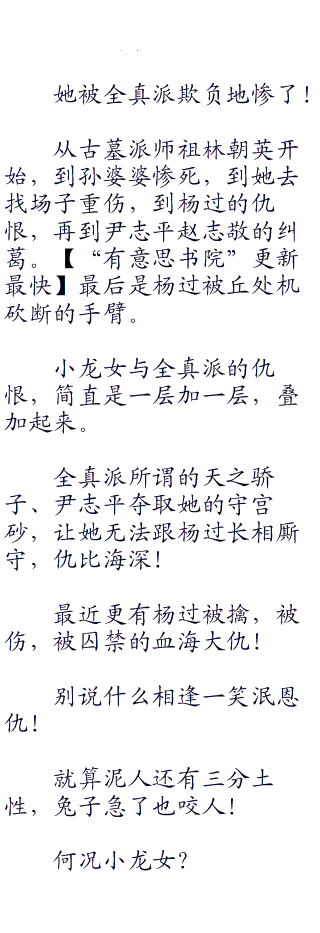 她被全真派欺负地惨了！
从古墓派师祖林朝英开
始，到孙婆婆惨死，到她去
找场子重伤，到杨过的仇
恨，再到尹志平赵志敬的纠
葛。【“有意思书院”更新
最快】最后是杨过被丘处机
砍断的手臂。
小龙女与全真派的仇
恨，简直是一层加一层，叠
加起来。
全真派所谓的天之骄
子、尹志平夺取她的守宫
砂，让她无法跟杨过长相厮
守，仇比海深！
最近更有杨过被擒，被
伤，被囚禁的血海大仇！
别说什么相逢一笑泯恩
仇！
就算泥人还有三分土
性，兔子急了也咬人！
何况小龙女？